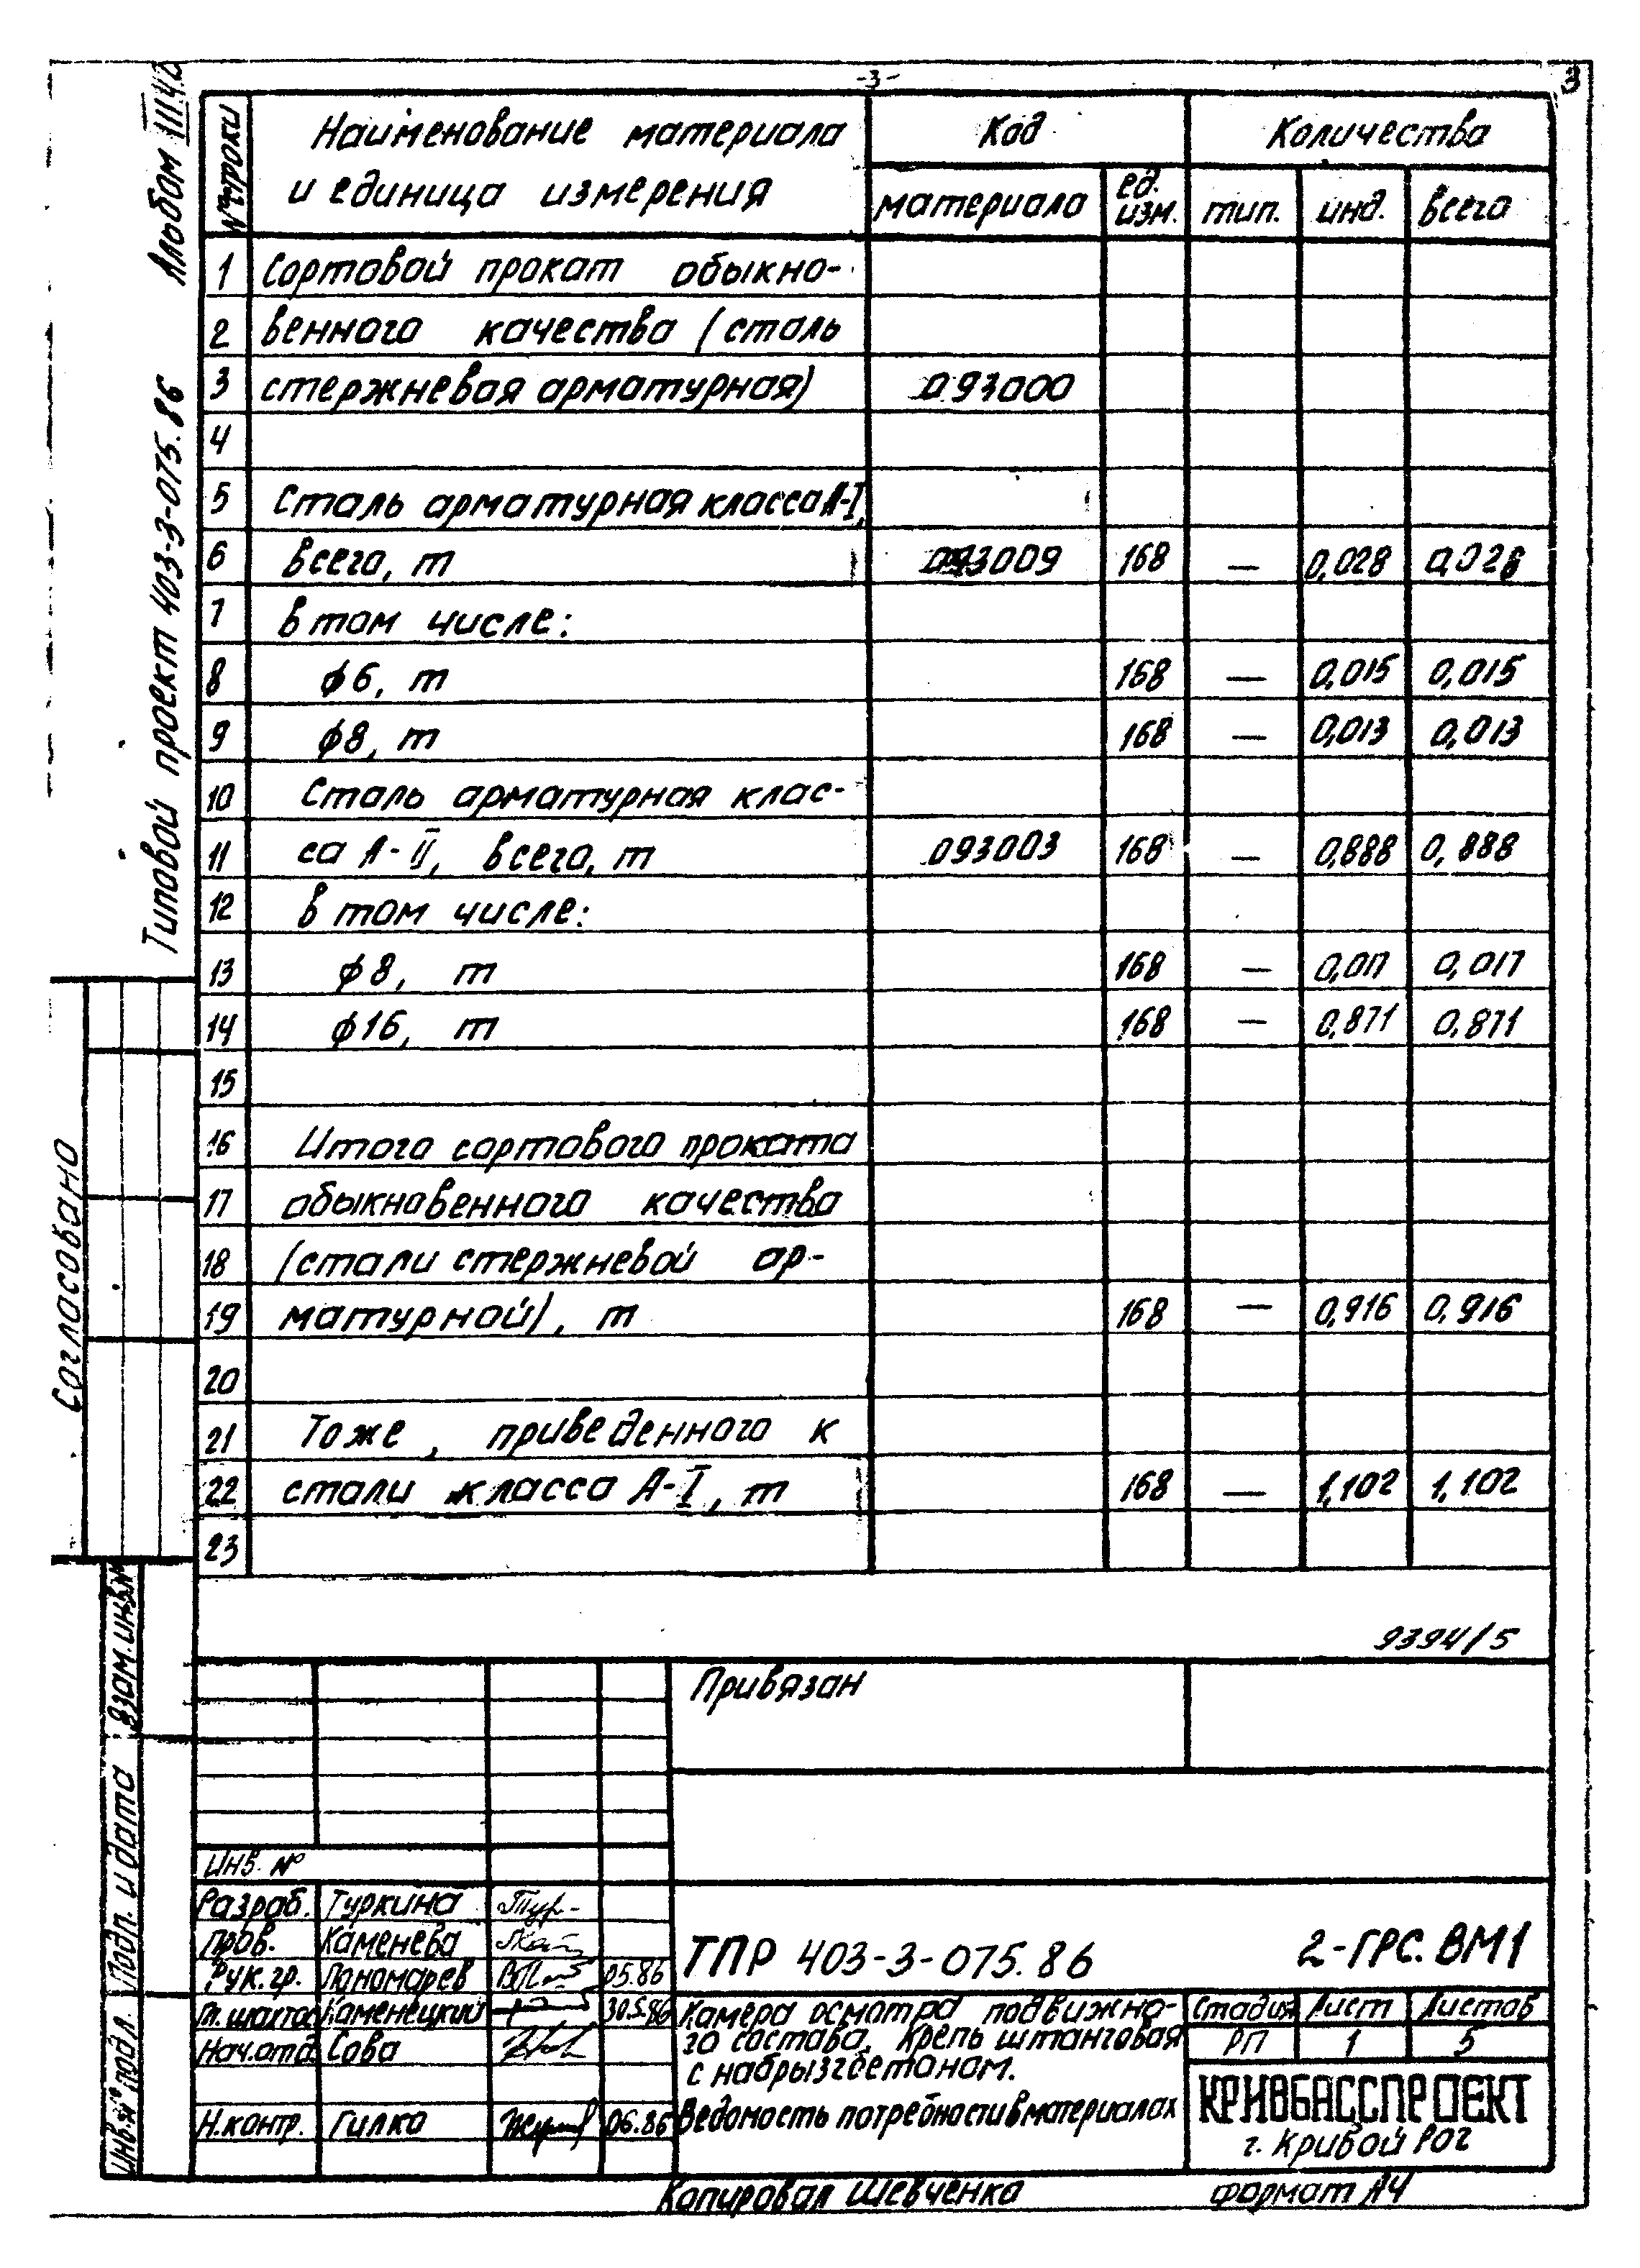 -3-
3
Альбом III.40
Типовой проект 403-3-075.86
Согласовано
Взам.инв.№
Подп. и дата
Инв.№ подл.
№ строки | Наименование материала и единица измерения | Код | Количества
материала | ед. изм. | тип. | инд. | всего
1 Сортовой прокат обыкно-
2 венного качества (сталь
3 стержневая арматурная) 093000
4
5 Сталь арматурная класса А-I,
6 всего, т 093009 168 — 0,028 0,028
7 в том числе:
8 ϕ6, т 168 — 0,015 0,015
9 ϕ8, т 168 — 0,013 0,013
10 Сталь арматурная клас-
11 са А-II, всего, т 093003 168 — 0,888 0,888
12 в том числе:
13 ϕ8, т 168 — 0,017 0,017
14 ϕ16, т 168 — 0,871 0,871
15
16 Итого сортового проката
17 обыкновенного качества
18 (стали стержневой ар-
19 матурной), т 168 — 0,916 0,916
20
21 Тоже, приведенного к
22 стали класса А-I, т 168 — 1,102 1,102
23
9394/5
Привязан
Инв. №
Разраб. Туркина
Пров. Каменева
Рук.гр. Пономарев 05.86
Гл.шахтос Каменецкий 30.5.86
Нач.отд Сова
Н.контр. Гилка 06.86
ТПР 403-3-075.86 2-ГРС.ВМ1
Камера осмотра подвижно-
го состава. Крепь штанговая
с набрызгбетоном.
Ведомость потребности в материалах
Стадия Лист Листов
РП 1 5
КРИВБАССПРОЕКТ
г. Кривой Рог
Копировал Шевченко Формат А4